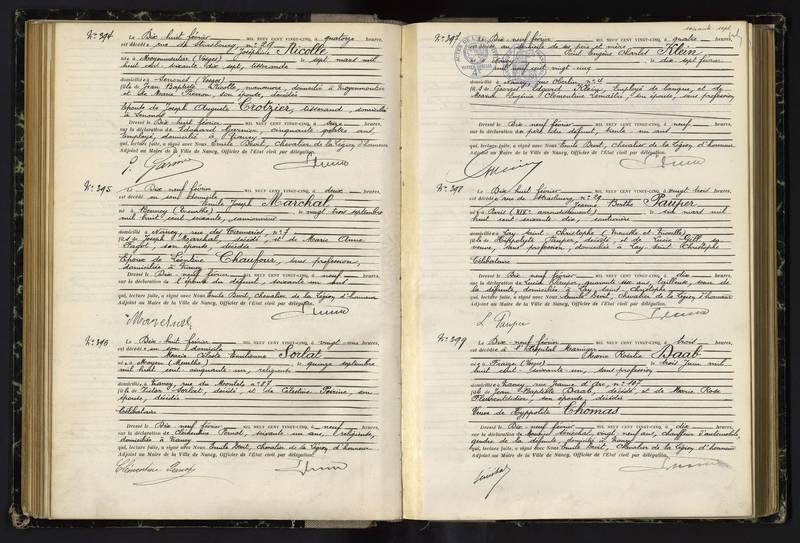 N° 394
Le Dix huit février MIL NEUF CENT VINGT-CINQ, à quatorze heures,
est décédée rue de Strasbourg, n° 29
Joséphine Nicolle
née à Moyenmoutier (Vosges) le sept mars mil
huit cent soixante dix sept, tisserande
domiciliée à Senones (Vosges)
fille de Jean Baptiste Nicolle, manœuvre, domicilié à Moyenmoutier
et de Marie Pierron, son épouse, décédée
Epouse de Joseph Auguste Crotzier, tisserand, domicilié
à Senones
Dressé le Dix huit février MIL NEUF CENT VINGT-CINQ, à seize heures,
sur la déclaration de Edouard cinquante ans,
employé, domicilié à Nancy
qui, lecture faite, a signé avec Nous Emile Chevalier de la Légion d'honneur
Adjoint au Maire de la Ville de Nancy, Officier de l'Etat civil par délégation.
N° 395
Le Dix neuf février MIL NEUF CENT VINGT-CINQ, à deux heures,
est décédé en son domicile
Emile Joseph Marchal
né à Benney (Meurthe) le vingt trois septembre
mil huit cent soixante, camionneur
domicilié à Nancy, rue des n° 7
fils de Joseph Marchal, décédé, et de Marie Anne
son épouse, décédée
Epoux de Léontine Chaufour, sans profession,
domiciliée à Nancy
Dressé le Dix neuf février MIL NEUF CENT VINGT-CINQ, à neuf heures,
sur la déclaration de l'épouse du défunt, soixante un ans
qui, lecture faite, a signé avec Nous Emile Chevalier de la Légion d'honneur
Adjoint au Maire de la Ville de Nancy, Officier de l'Etat civil par délégation.
N° 396
Le Dix huit février MIL NEUF CENT VINGT-CINQ, à vingt une heures,
est décédée en son domicile
Marie Emilienne Sorlat
née à Moyen (Meurthe) le quinze septembre
mil huit cent cinquante un, religieuse
domiciliée à Nancy, rue du Montet n° 87
fille de Victor Sorlat, décédé, et de Célestine son
épouse, décédée
Célibataire
Dressé le Dix neuf février MIL NEUF CENT VINGT-CINQ, à neuf heures,
sur la déclaration de Clémentine soixante un ans, religieuse,
domiciliée à Nancy
qui, lecture faite, a signé avec Nous Emile Chevalier de la Légion d'honneur
Adjoint au Maire de la Ville de Nancy, Officier de l'Etat civil par délégation.
soixante sept
N° 397
Le Dix neuf février MIL NEUF CENT VINGT-CINQ, à quatre heures,
est décédé au domicile de ses père et mère
Paul Eugène Charles Klein
Nancy le dix sept février
mil neuf cent vingt cinq
domicilié à Nancy, rue Oberlin n° 4
fils de Georges Edgard Klein, employé de banque, et de
Marie Eugénie Clémentine son épouse, sans profession
Dressé le Dix neuf février MIL NEUF CENT VINGT-CINQ, à neuf heures,
sur la déclaration du père du défunt, trente un ans
qui, lecture faite, a signé avec Nous Emile Chevalier de la Légion d'honneur
Adjoint au Maire de la Ville de Nancy, Officier de l'Etat civil par délégation.
N° 398
Le Dix huit février MIL NEUF CENT VINGT-CINQ, à vingt trois heures,
est décédée rue de Strasbourg, n° 29
Jeanne Berthe Pauper
née à Paris (XIXe arrondissement) le six mars mil
huit cent soixante dix, couturière
domiciliée à Lay Saint Christophe (Meurthe et Moselle)
fille de Hippolyte Pauper, décédé, et de Lucie Gill, sa
veuve, sans profession, domiciliée à Lay Saint Christophe
Célibataire
Dressé le Dix neuf février MIL NEUF CENT VINGT-CINQ, à dix heures,
sur la déclaration de Lucie Pauper, quarante six ans, tailleuse, sœur de
la défunte, domiciliée à Lay Saint Christophe
qui, lecture faite, a signé avec Nous Emile Chevalier de la Légion d'honneur
Adjoint au Maire de la Ville de Nancy, Officier de l'Etat civil par délégation.
L Pauper
N° 399
Le Dix neuf février MIL NEUF CENT VINGT-CINQ, à trois heures,
est décédée à l'Hôpital Maringer
Marie Rosalie Baab
née à Fraize (Vosges) le trois Juin mil
huit cent soixante un, sans profession
domiciliée à Nancy, rue Jeanne d'Arc n° 107
fille de Jean Baptiste Baab, décédé, et de Marie Rose
Fleurentdidier, son épouse, décédée
Veuve de Hyppolite Thomas
Dressé le Dix neuf février MIL NEUF CENT VINGT-CINQ, à dix heures,
sur la déclaration de Sénéchal, vingt neuf ans, chauffeur d'automobile,
gendre de la défunte, domicilié à Nancy
qui, lecture faite, a signé avec Nous Emile Chevalier de la Légion d'honneur
Adjoint au Maire de la Ville de Nancy, Officier de l'Etat civil par délégation.
Sénéchal